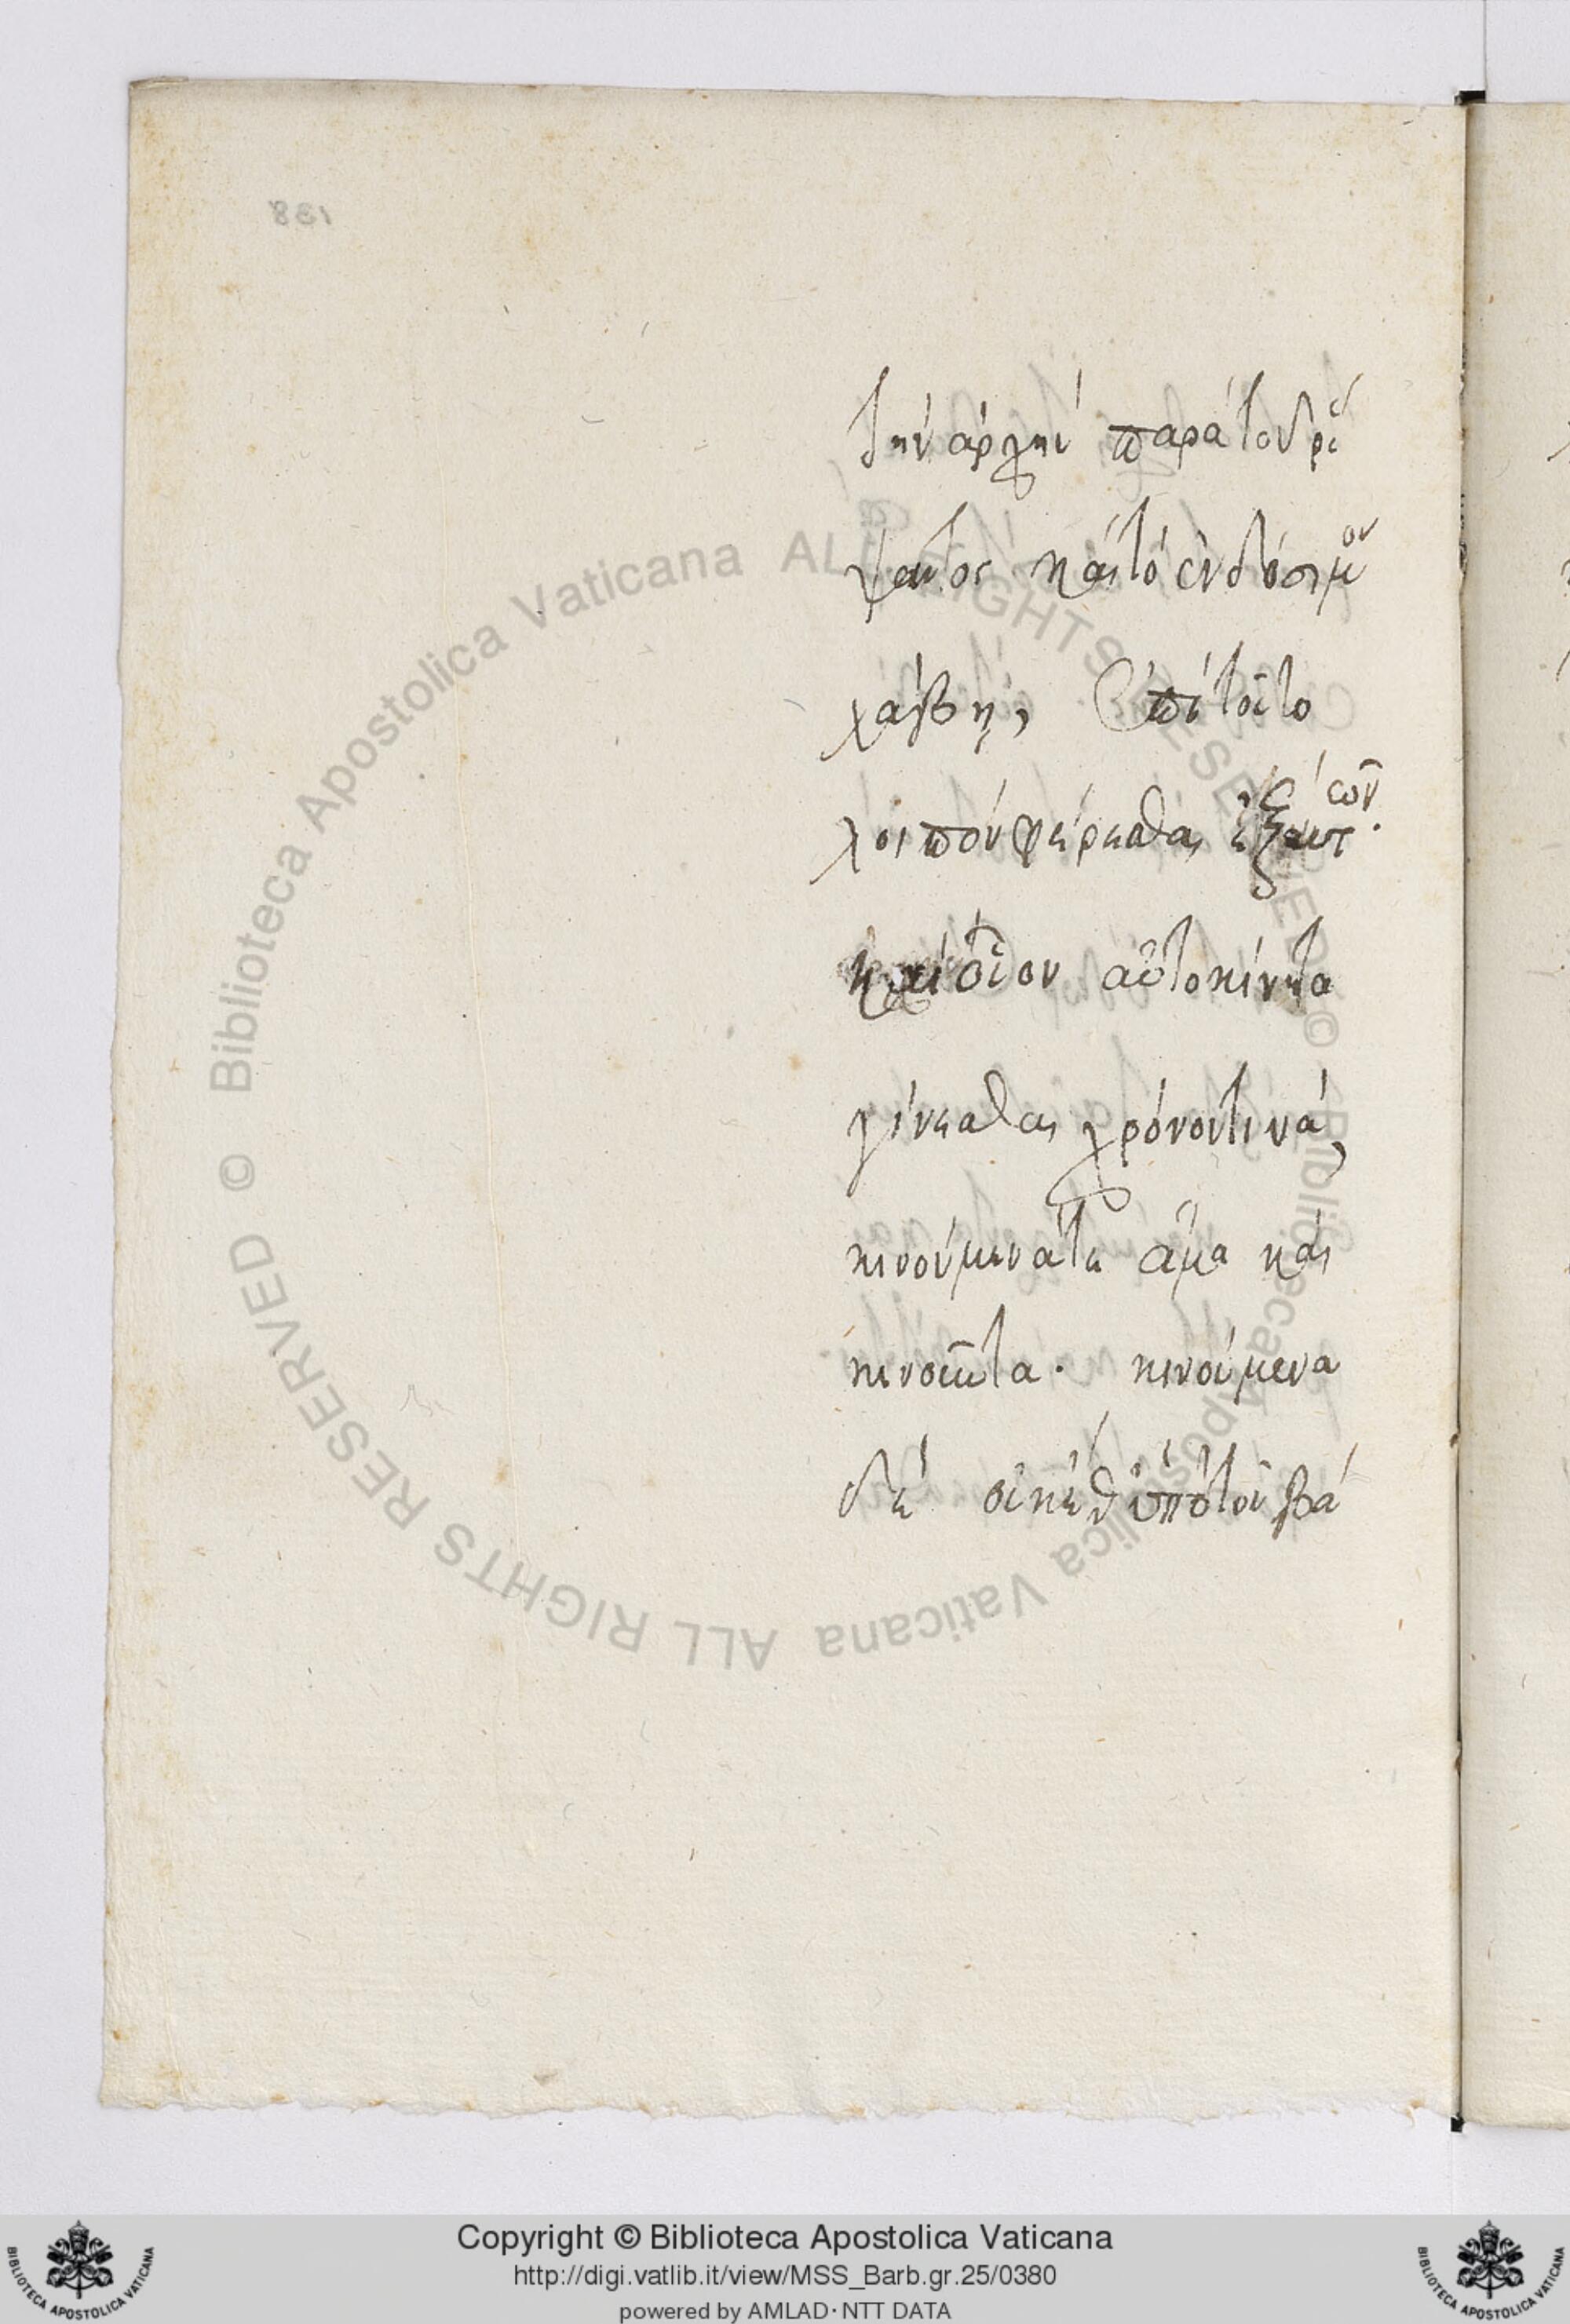 138
τὴν ἀρχὴν παρὰ τοῦ ῥί
ψαντος καὶ τὸ ἐνδόσιμον
λάβῃ, ἐπὶ τὸ
λοιπὸν φέρεσθαι ἐξ αυτῶν.
καὶ οἷον αὐτοκίνητα
γίνεσθαι χρόνον τινά,
κινούμενά τε ἅμα καὶ
κινοῦντα. κινούμενα
δὲ οὐκέθ' ὑπὸ τοῦ βά
© Biblioteca Apostolica Vaticana ALL RIGHTS RESERVED © Biblioteca Apostolica Vaticana ALL RIGHTS RESERVED
Copyright © Biblioteca Apostolica Vaticana
http://digi.vatlib.it/view/MSS_Barb.gr.25/0380
powered by AMLAD · NTT DATA
BIBLIOTECA APOSTOLICA VATICANA
BIBLIOTECA APOSTOLICA VATICANA